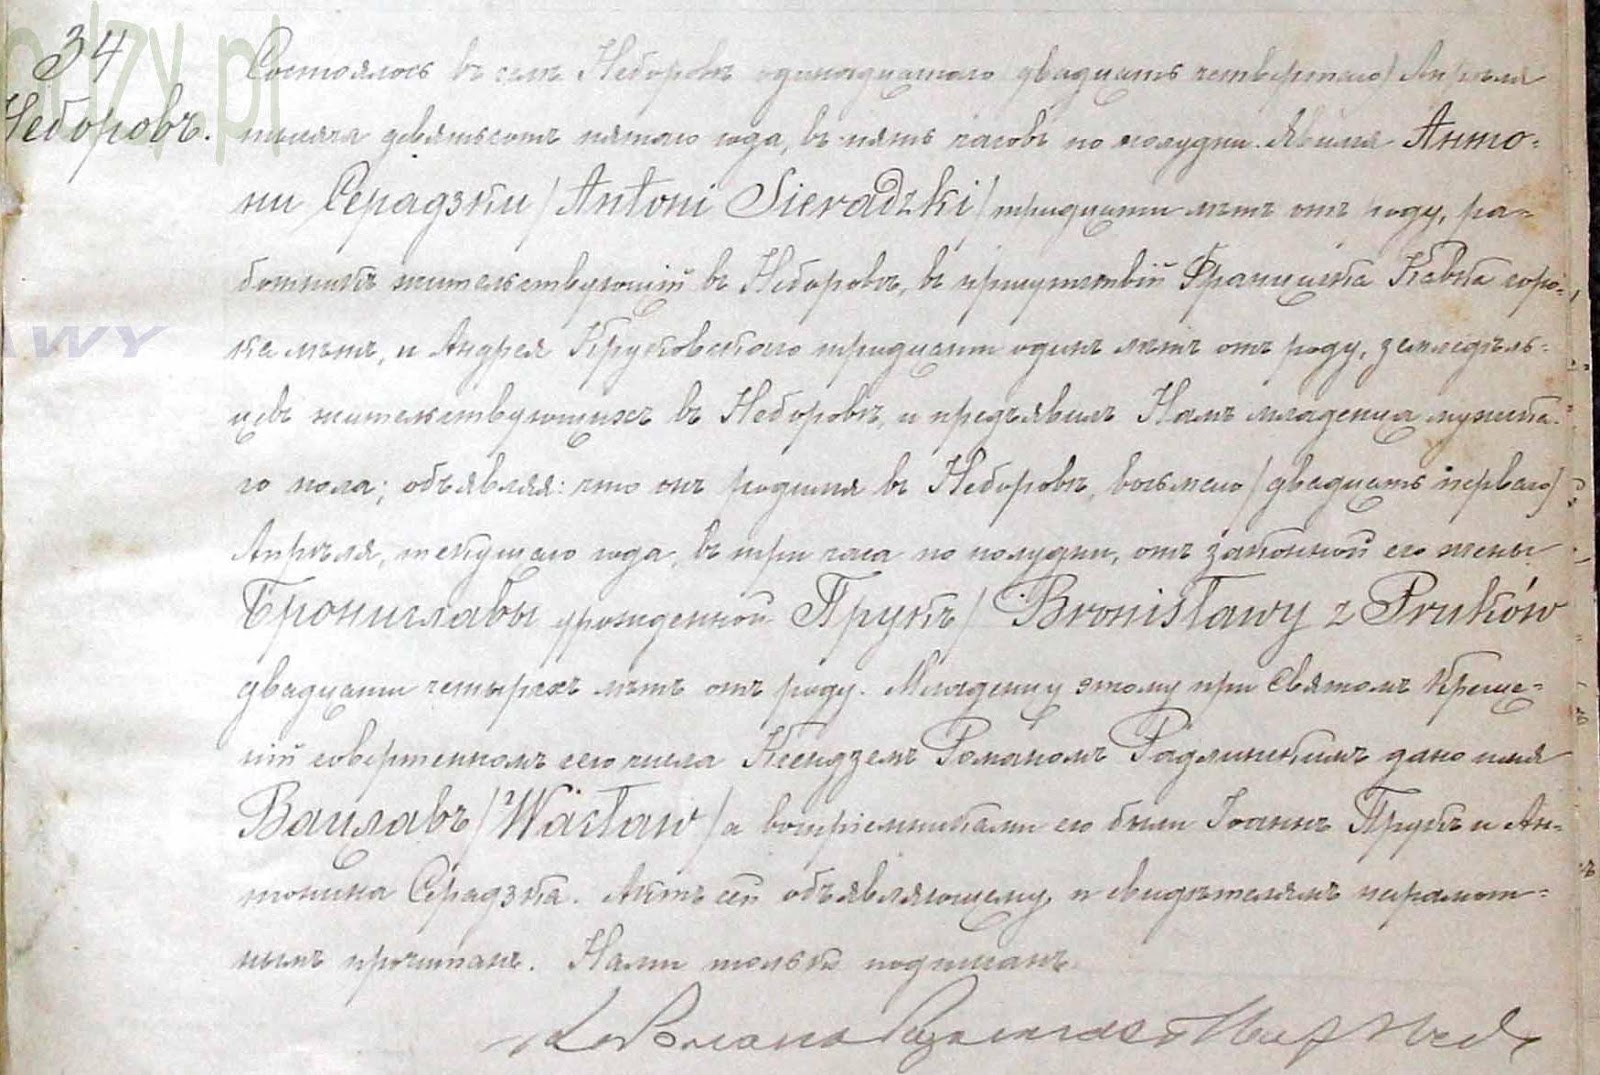 34
Неборовъ.
Состоялось въ селѣ Неборовѣ одиннадцатаго /двадцать четвертаго/ Апрѣля
тысяча девятьсотъ пятаго года, въ пять часовъ по полудни. Явился Анто=
ни Серадзки /Antoni Sieradzki/ тридцати лѣтъ отъ роду, ра=
ботникъ жительствующій въ Неборовѣ, въ присутствіи Францишка Кавка соро=
ка лѣтъ, и Андрея Круковскаго тридцати одинъ лѣтъ отъ роду, земледѣль=
цевъ жительствующихъ въ Неборовѣ, и предъявилъ Намъ младенца мужска=
го пола; объявляя: что онъ родился въ Неборовѣ, восьмого /двадцать перваго/
Апрѣля, текущаго года, въ три часа по полудни, отъ законной его жены
Брониславы урожденной Прукъ / Bronisławy z Pruków
двадцати четырехъ лѣтъ отъ роду. Младенцу этому при Святомъ Креще=
ніи совершенномъ сего числа Ксендземъ Романомъ Радлинскимъ дано имя
Вацлавъ /Wacław/ а воспріемниками его были Іоаннъ Прукъ и Ан=
тонина Серадзка. Актъ сей объявляющему и свидѣтелямъ неграмот=
нымъ прочитанъ. Нами только подписанъ.